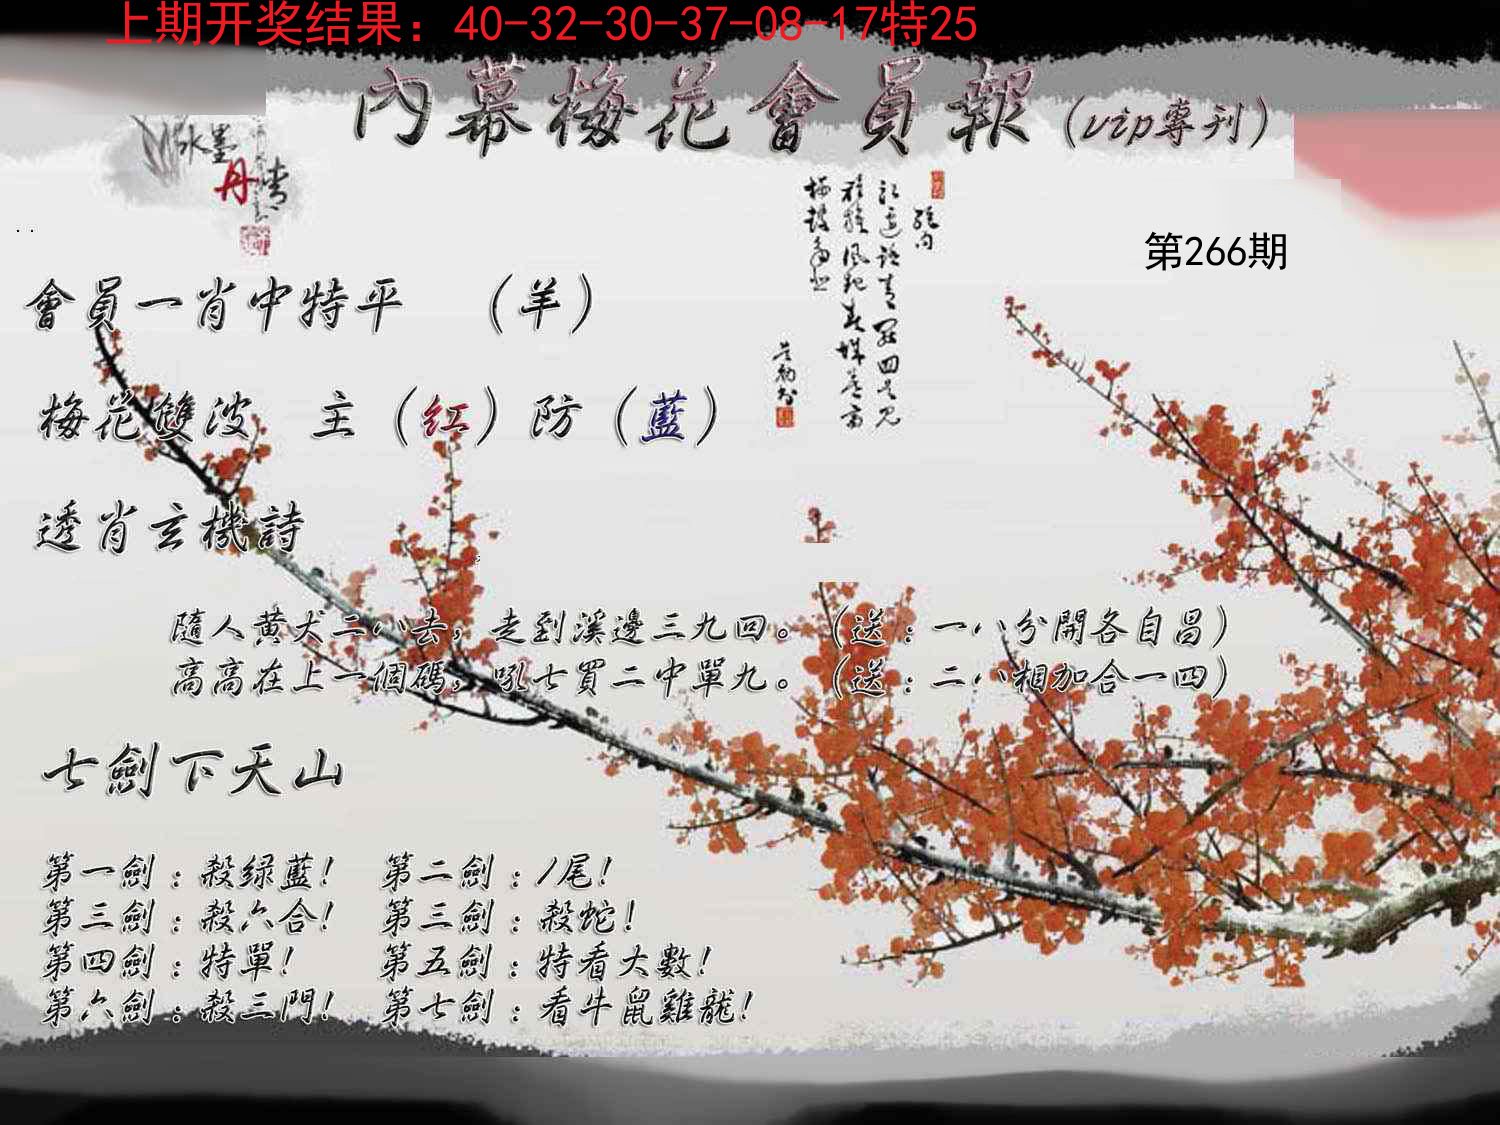 上期开奖结果：40-32-30-37-08-17特25
內幕梅花會員報(vip專刊)
水墨
丹情
第266期
會員一肖中特平 （羊）
梅花雙波 主（红）防（藍）
透肖玄機詩
隨人黄犬二八去，走到溪邊三九回。（送：一八分開各自昌）
高高在上一個碼，吼七買二中單九。（送：二八相加合一四）
七劍下天山
第一劍：殺绿藍！ 第二劍：1尾！
第三劍：殺六合！ 第三劍：殺蛇！
第四劍：特單！ 第五劍：特看大數！
第六劍：殺三門！ 第七劍：看牛鼠雞龍！